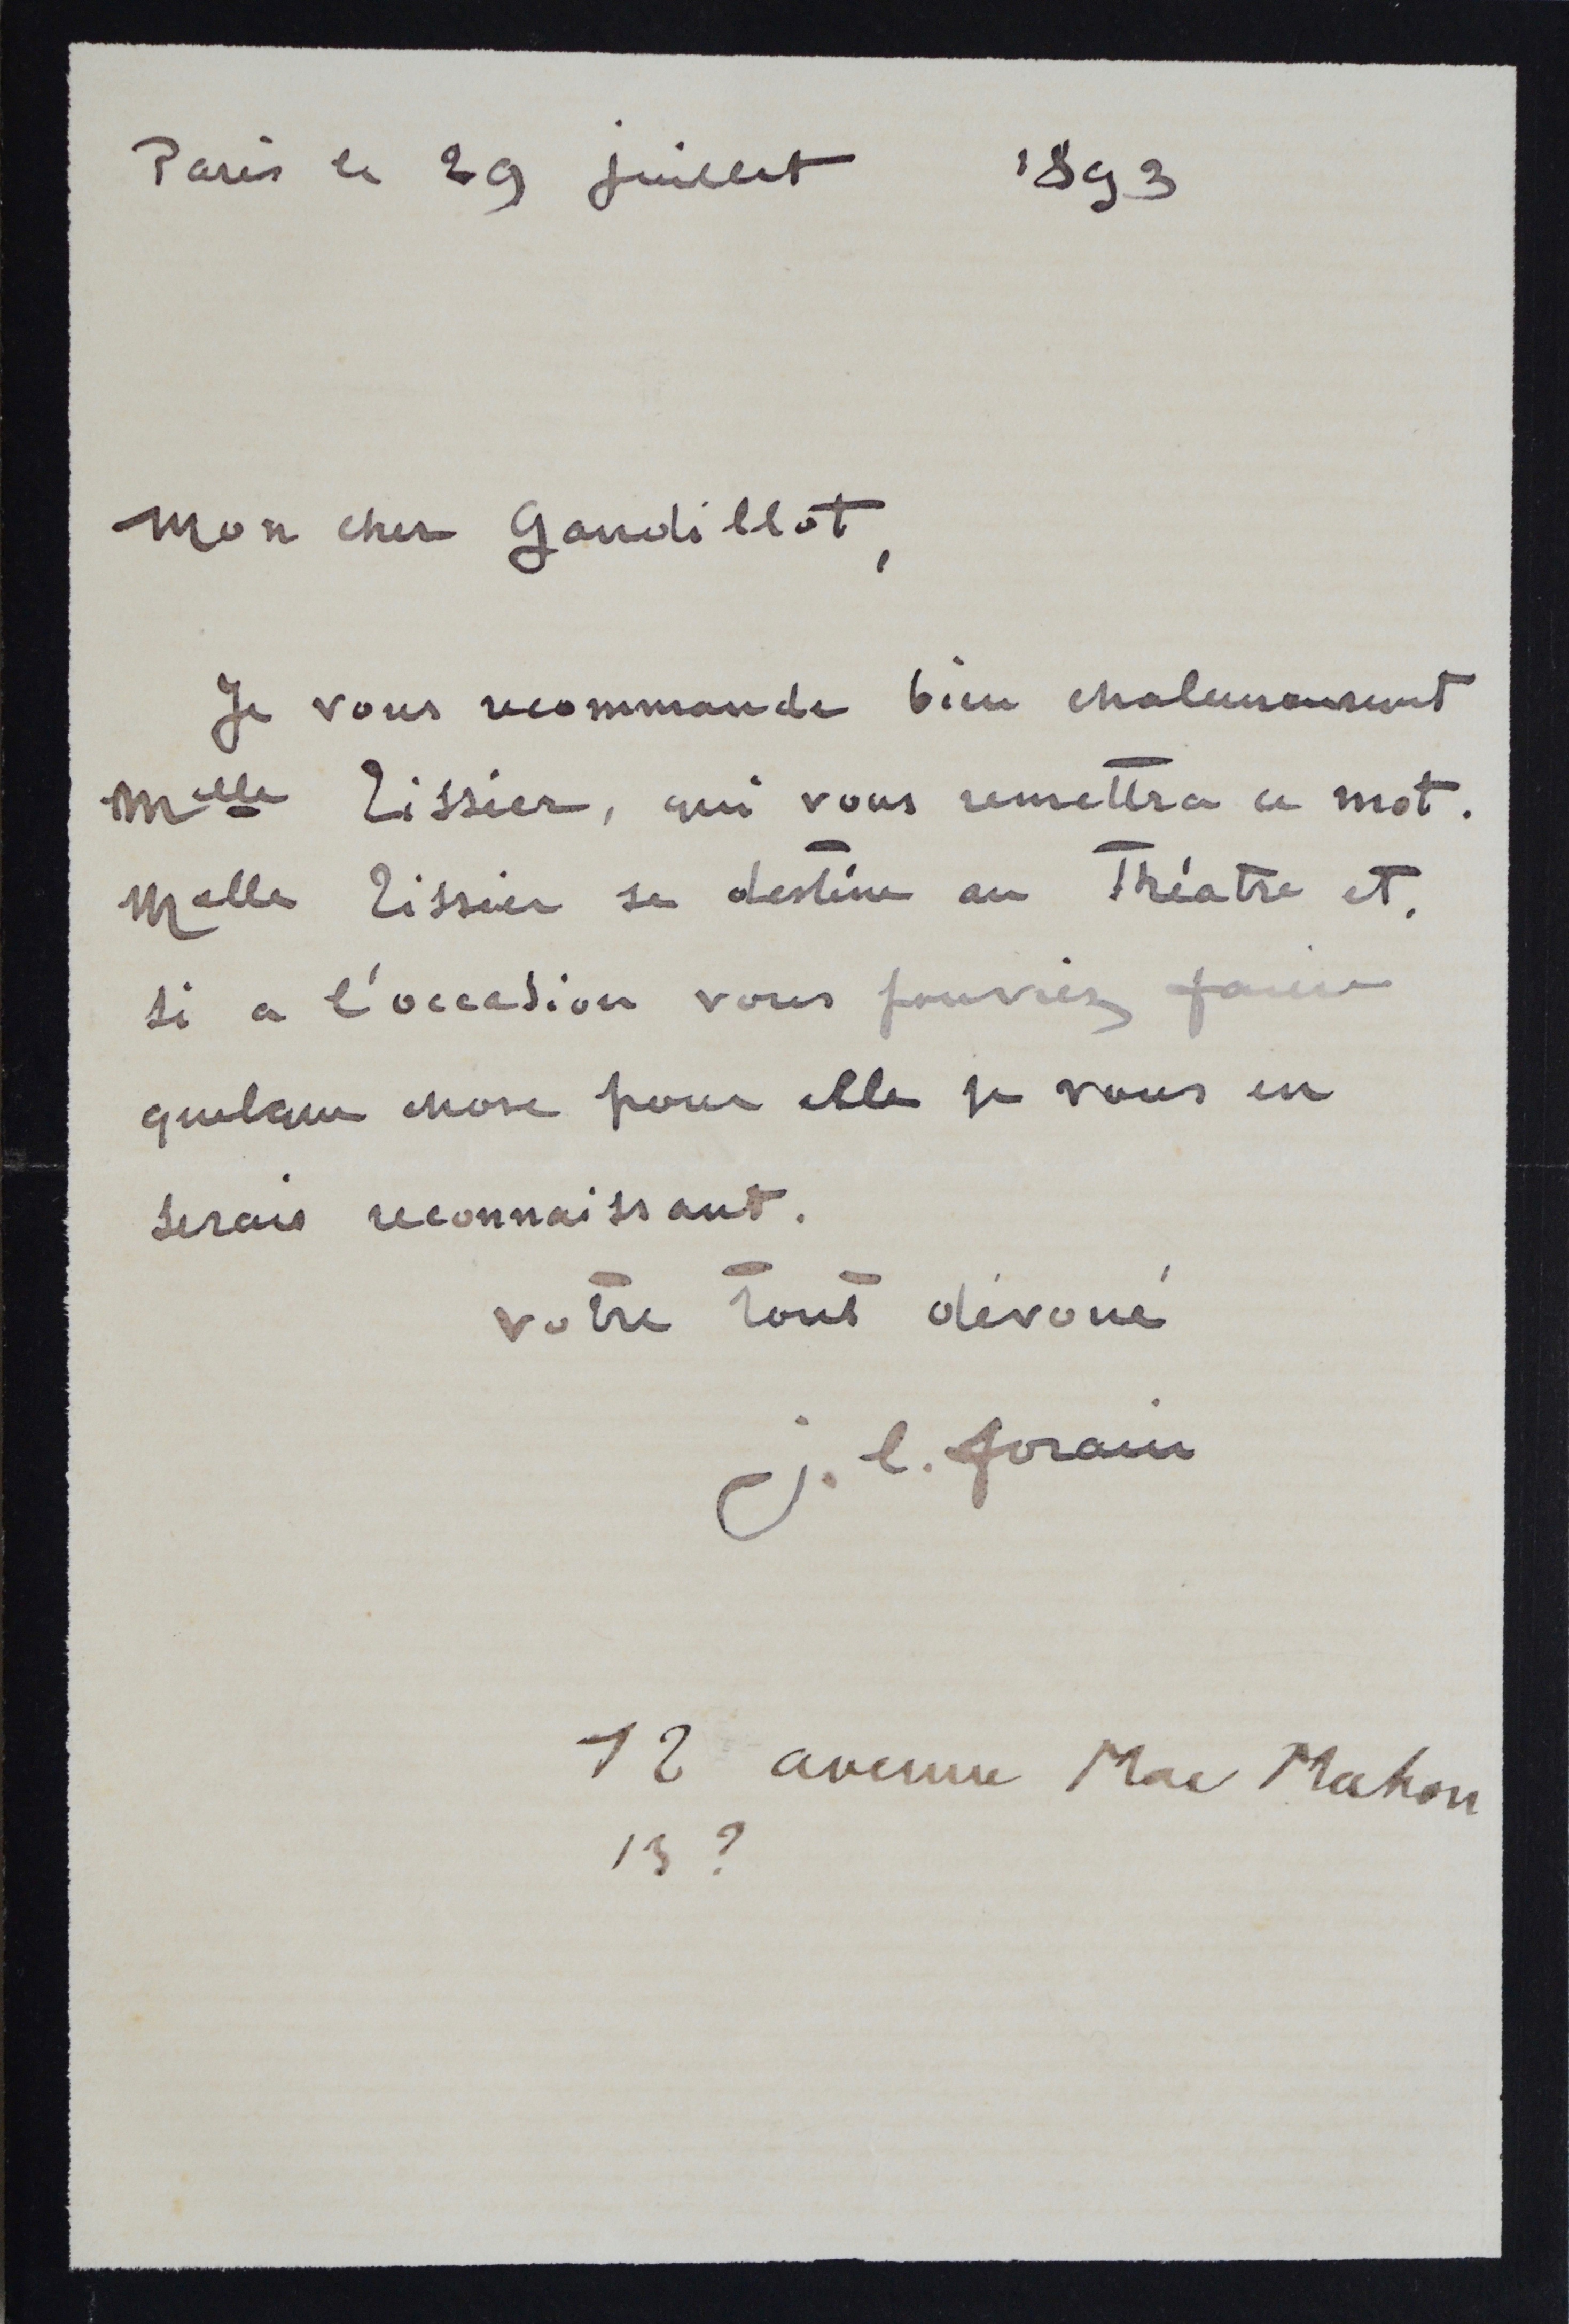 Paris le 29 juillet 1893
Mon cher Gandillot,
Je vous recommande bien chaleureusement
Melle Tissier, qui vous remettra ce mot.
Melle Tissier se destine au Théatre et,
si a l'occasion vous pouvriez faire
quelque chose pour elle je vous en
serais reconnaissant.
votre tout dévoué
j. l. forain
12 avenue Mac Mahon
13 ?